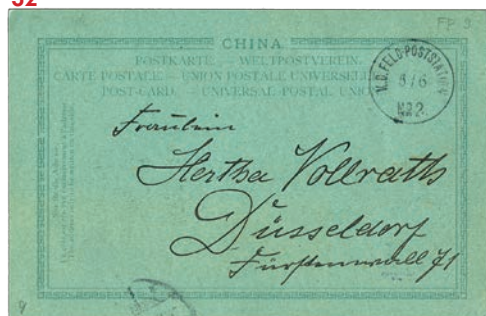 32
FP 3
CHINA
POSTKARTE. — WELTPOSTVEREIN.
CARTE POSTALE. — UNION POSTALE UNIVERSELLE
POST-CARD. — UNIVERSAL POSTAL UNION
K.D. FELD-POSTSTATION
8/6
No 2.
Fräulein
Hertha Vollrath
Düsseldorf
Fürstenwall 71